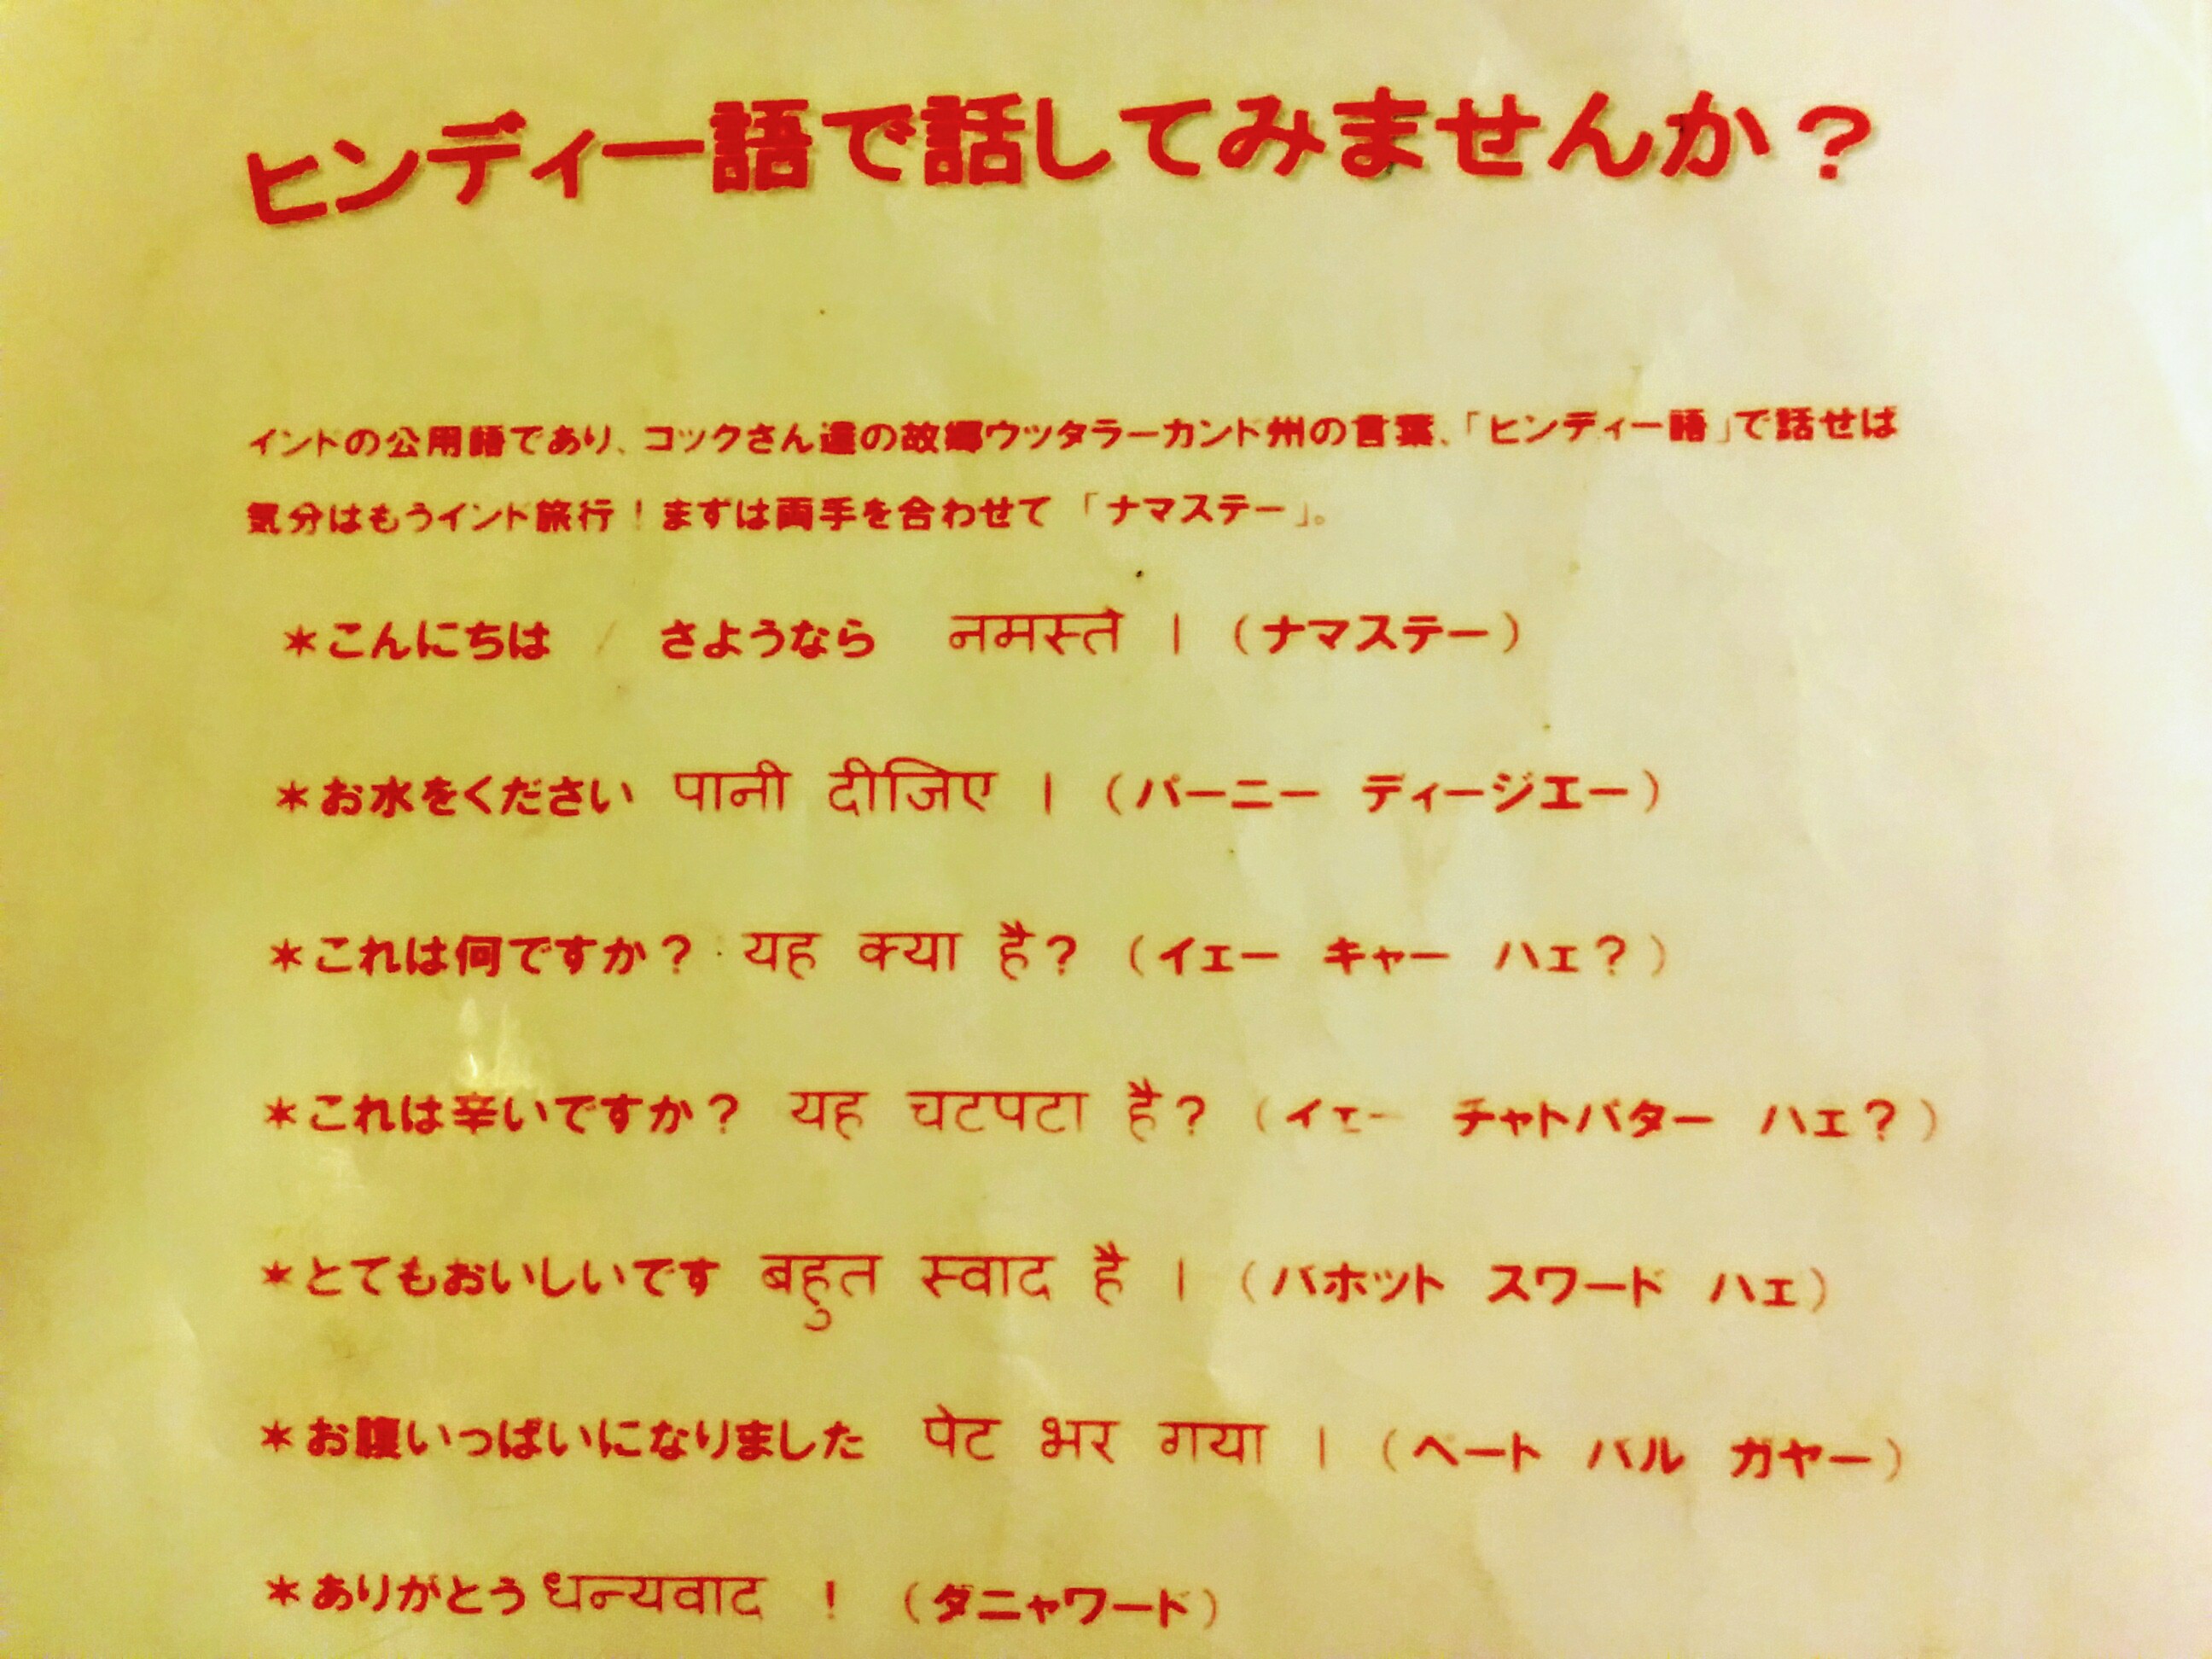 ヒンディー語で話してみませんか？
インドの公用語であり、コックさん達の故郷ウッタラーカンド州の言葉、「ヒンディー語」で話せば
気分はもうインド旅行！まずは両手を合わせて「ナマステー」。
＊こんにちは / さようなら नमस्ते । （ナマステー）
＊お水をください पानी दीजिए । （パーニー ディージエー）
＊これは何ですか？ यह क्या है? （イェー キャー ハェ？）
＊これは辛いですか？ यह चटपटा है? （イェー チャトパター ハェ？）
＊とてもおいしいです बहुत स्वाद है । （バホット スワード ハェ）
＊お腹いっぱいになりました पेट भर गया । （ペート バル ガヤー）
＊ありがとう धन्यवाद ! （ダニャワード）